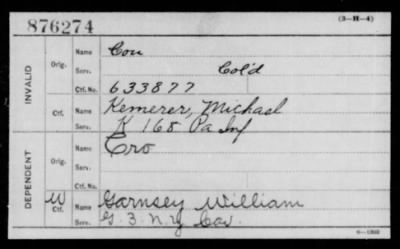 876274 (3-H-4)
INVALID
Orig. Name Con
Serv. Col'd
Ctf. No. 633877
Ctf. Name Kemerer, Michael
Serv. K 168 Pa Inf
DEPENDENT
Orig. Name Cro
Serv.
Ctf. No.
W Ctf. Name Garnsey William
Serv. G. 3. N.Y Cav.